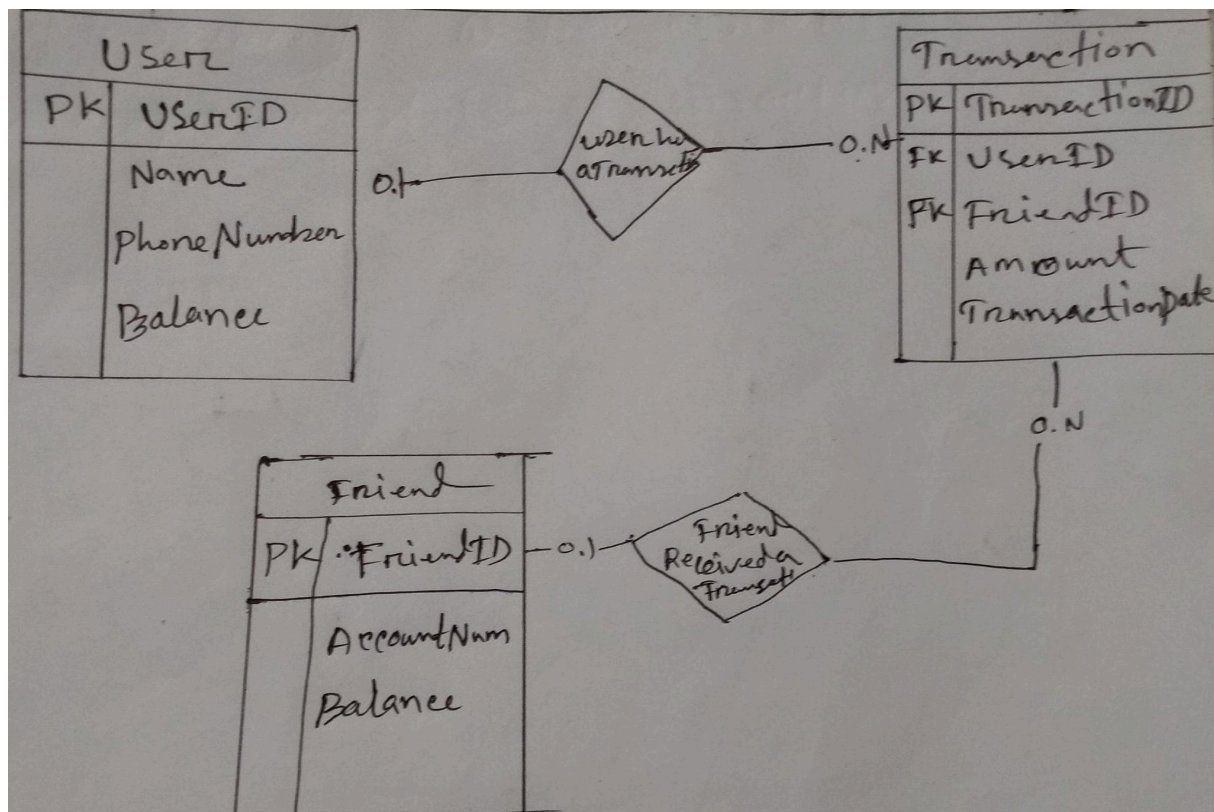 User
PK UserID
Name
PhoneNumber
Balance
0.1
user ha
a Transacti
0.N
Transaction
PK TransactionID
FK UserID
FK FriendID
Amount
TransactionDate
0.N
Friend
PK FriendID
AccountNum
Balance
0.1
Frien
Received a
Transati